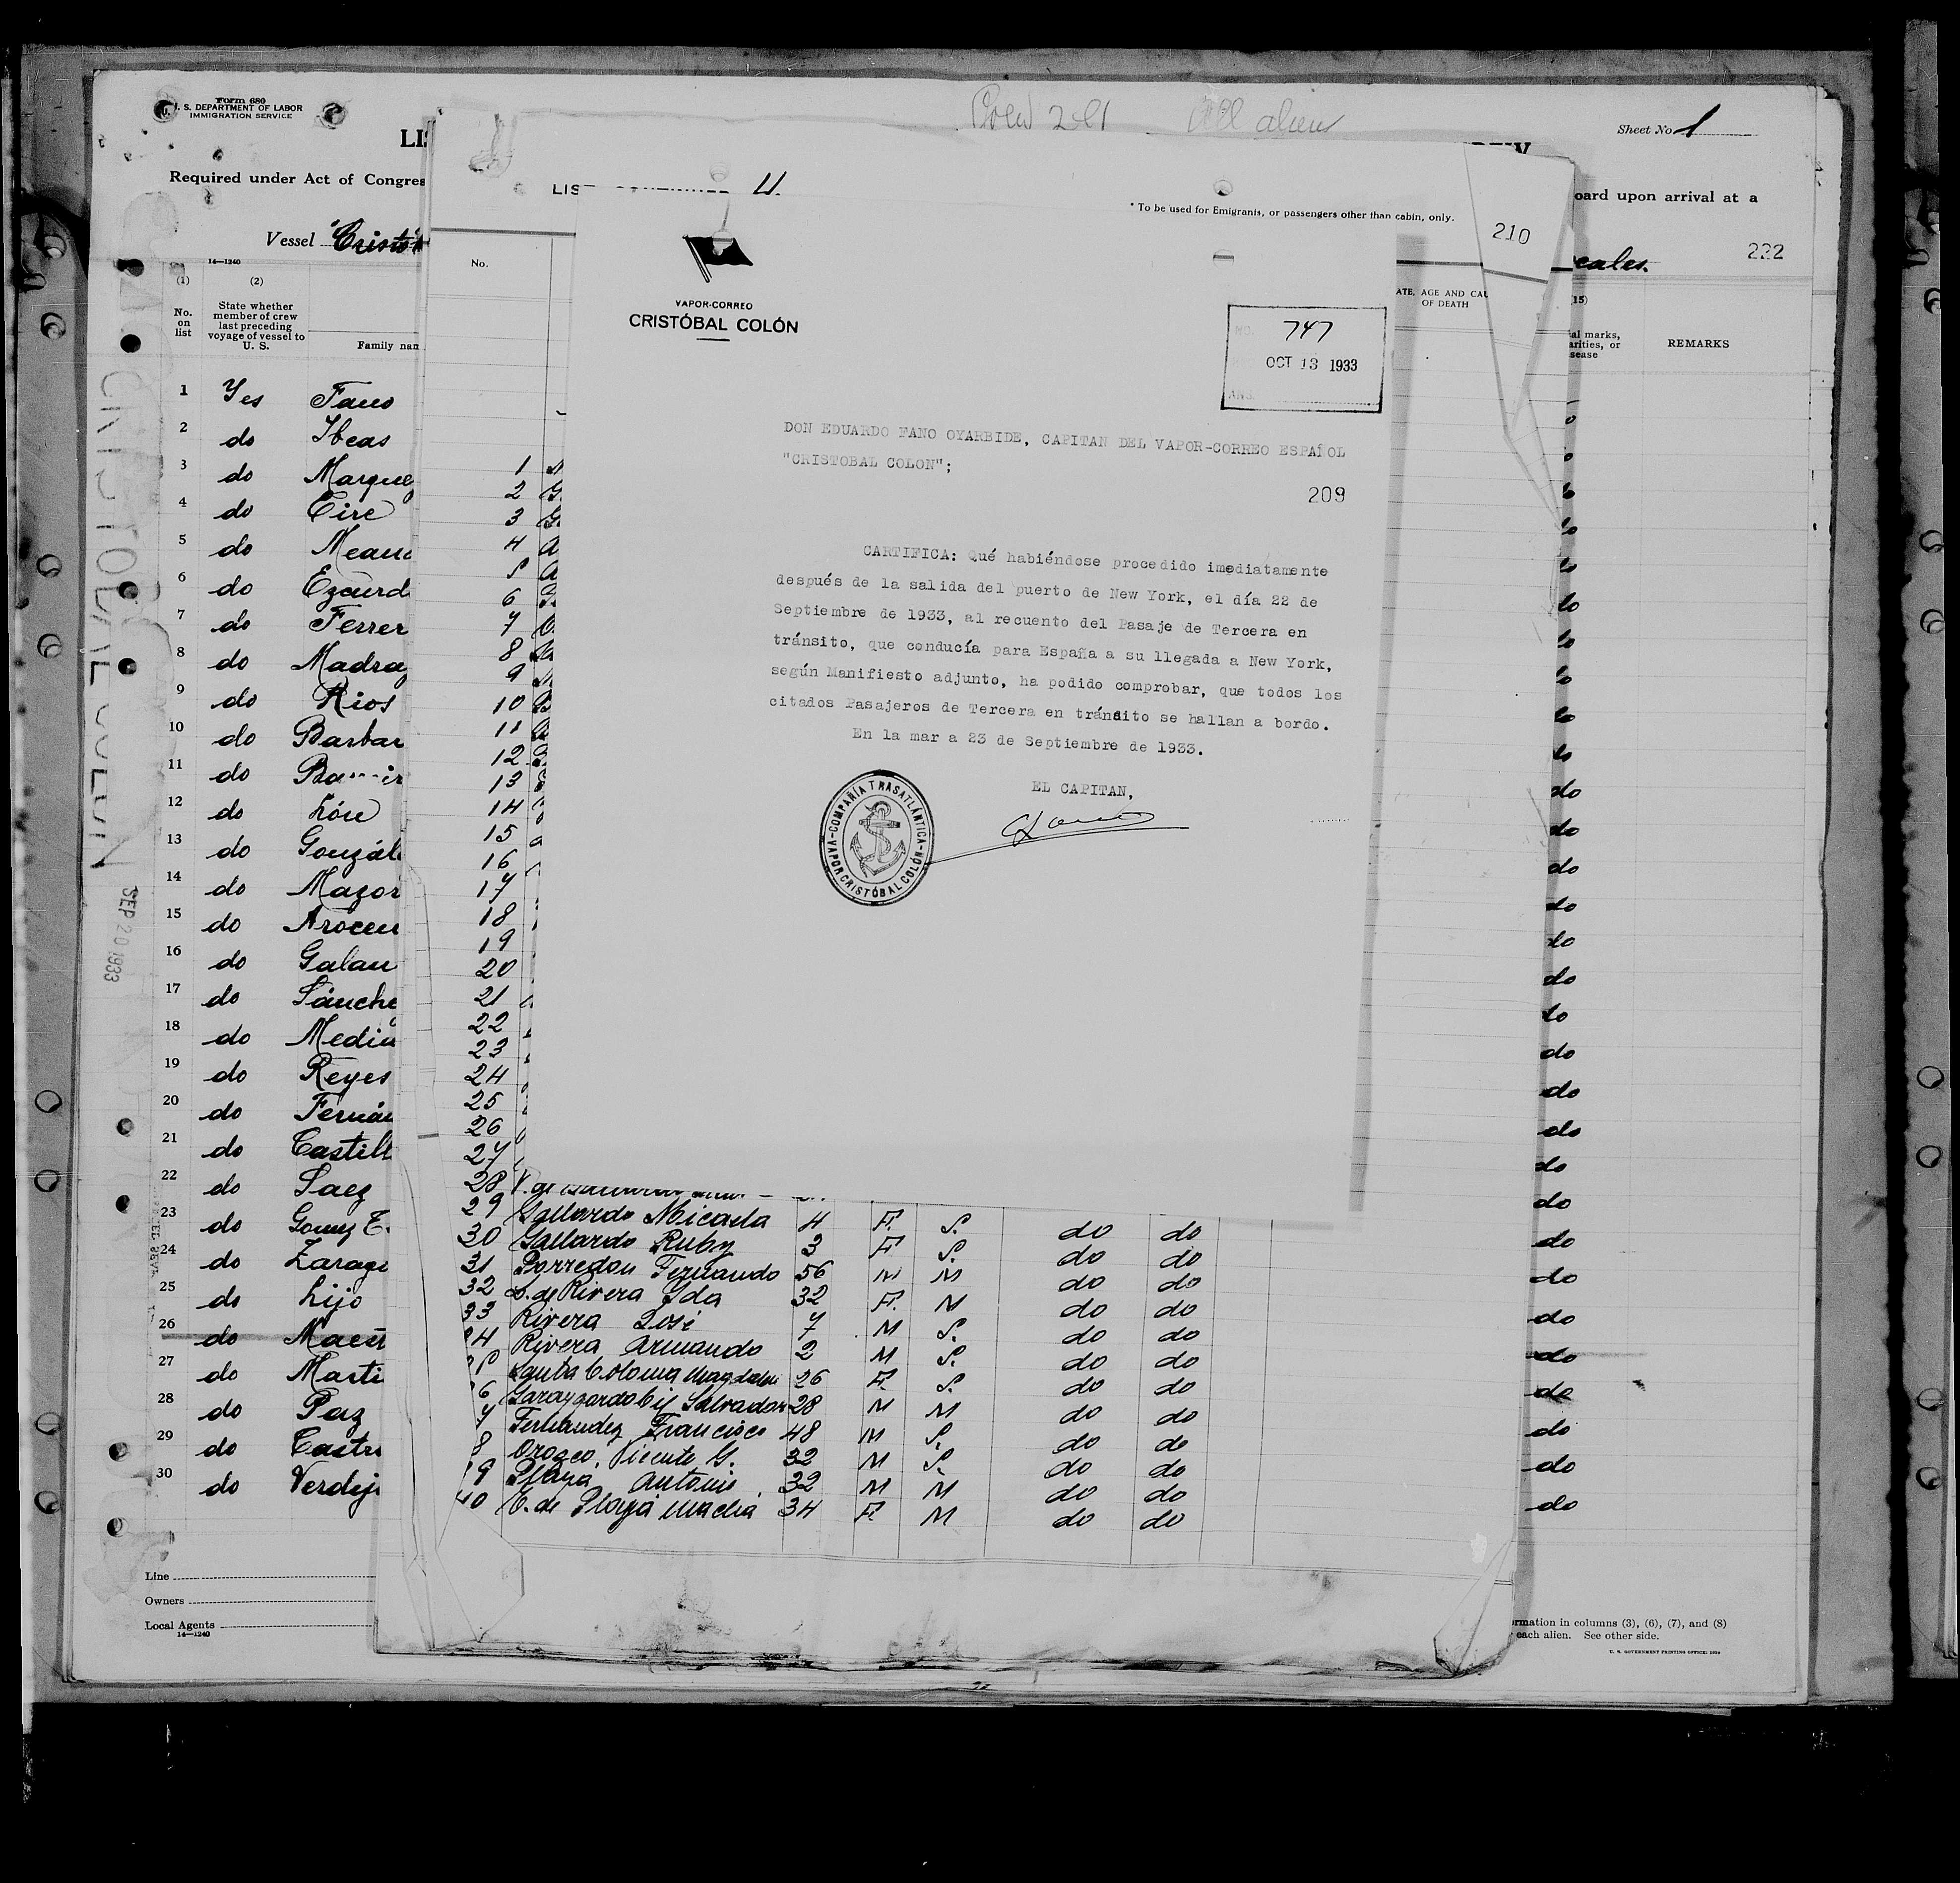 Form 680
U. S. DEPARTMENT OF LABOR
IMMIGRATION SERVICE
Sheet No 1
Required under Act of Congres
oard upon arrival at a
Vessel Cristó
cales.
222
14—1240
(1)
No.
on
list
(2)
State whether
member of crew
last preceding
voyage of vessel to
U. S.
Family nam
(15)
al marks,
arities, or
sease
REMARKS
1 Yes Fano
2 do Ibeas
3 do Marquez
4 do Eire
5 do
6 do Ezcurd
7 do Ferrer
8 do Madraz
9 do Rios
10 do Barbar
11 do
12 do
13 do Gonzál
14 do Mazor
15 do Arocen
16 do Galan
17 do Sánche
18 do Medin
19 do Reyes
20 do Fernán
21 do Castill
22 do Saez
23 do Gomez
24 do Zarago
25 do Lijo
26 do Maest
27 do Marti
28 do Paz
29 do Castri
30 do Verdej
Line
Owners
Local Agents
14—1240
rmation in columns (3), (6), (7), and (8)
each alien. See other side.
U. S. GOVERNMENT PRINTING OFFICE:
CRISTOBAL COLON
SEP 20 1933
All alien
LIS
11.
* To be used for Emigrants, or passengers other than cabin, only.
210
No.
ATE, AGE AND CAU
OF DEATH
1
2
3
4
5
6
7
8
9
10
11
12
13
14
15
16
17
18
19
20
21
22
23
24
25
26
27
28
29 Gallardo Micaela 4 F. S. do do
30 Gallardo Ruby 3 F S. do do
31 Borredon Fernando 56 M M do do
32 de Rivera Ida 32 F. M do do
33 Rivera José 7 M S. do do
34 Rivera Armando 2 M S. do do
Santa Coloma Magdalena 26 F. S. do do
6 Salvador 28 M M do do
7 Fernandez Francisco 48 M S. do do
8 Orozco, Vicente G. 32 M S. do do
9 Playá Antonio 32 M M do do
40 de Playá 34 F. M do do
VAPOR-CORREO
CRISTÓBAL COLÓN
NO. 747
OCT 13 1933
ANS.
DON EDUARDO FANO OYARBIDE, CAPITAN DEL VAPOR-CORREO ESPAÑOL
"CRISTOBAL COLON";
209
CARTIFICA: Qué habiéndose procedido imediatamente
después de la salida del puerto de New York, el día 22 de
Septiembre de 1933, al recuento del Pasaje de Tercera en
tránsito, que conducía para España a su llegada a New York,
según Manifiesto adjunto, ha podido comprobar, que todos los
citados Pasajeros de Tercera en tránsito se hallan a bordo.
En la mar a 23 de Septiembre de 1933.
EL CAPITAN,
COMPAÑÍA TRASATLÁNTICA
VAPOR CRISTÓBAL COLÓN